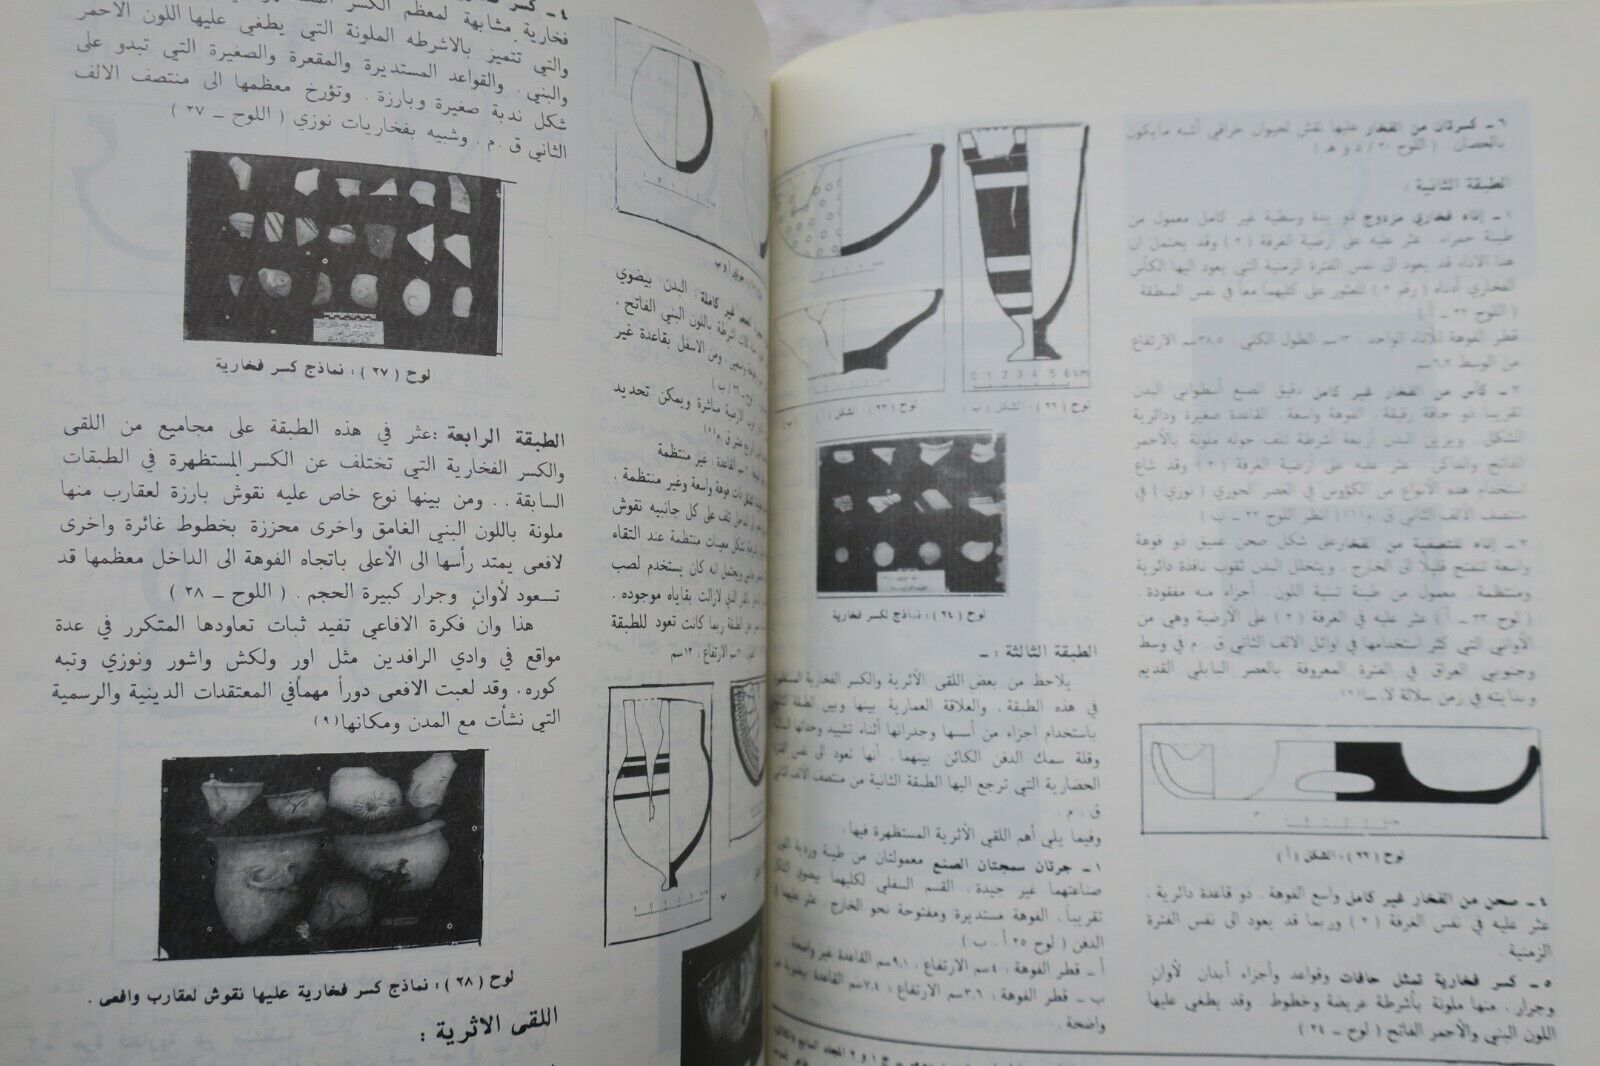 ٤ ـ كسر
فخارية مشابهة لمعظم الكسر
والتي تتميز بالاشرطه الملونة التي يطغي عليها اللون الاحمر
والبني . والقواعد المستديرة والمقعرة والصغيرة التي تبدو على
شكل ندبة صغيرة وبارزة . وتؤرخ معظمها الى منتصف الالف
الثاني ق . م . وشبيه بفخاريات نوزي ( اللوح ـ ٢٧ )
لوح ( ٢٧ ) : نماذج كسر فخارية
الطبقة الرابعة : عثر في هذه الطبقة على مجاميع من اللقى
والكسر الفخارية التي تختلف عن الكسر المستظهرة في الطبقات
السابقة . . ومن بينها نوع خاص عليه نقوش بارزة لعقارب منها
ملونة باللون البني الغامق واخرى محززة بخطوط غائرة واخرى
لافعى يمتد رأسها الى الأعلى باتجاه الفوهة الى الداخل معظمها قد
تسعود لأوانٍ وجرار كبيرة الحجم . ( اللوح ـ ٢٨ )
هذا وان فكرة الافاعي تفيد ثبات تعاودها المتكرر في عدة
مواقع في وادي الرافدين مثل اور ولكش واشور ونوزي وتبه
كوره . وقد لعبت الافعى دوراً مهمافي المعتقدات الدينية والرسمية
التي نشأت مع المدن ومكانها(٩)
لوح ( ٢٨ ) : نماذج كسر فخارية عليها نقوش لعقارب وافعى .
اللقى الاثرية :
غير كاملة . البدن بيضوي
اشرطة باللون البني الفاتح .
ومن الاسفل بقاعدة غير
الارضية مباشرة ويمكن تحديد
القاعدة . غير منتظمة
ذات فوهة واسعة وغير منتظمة .
الداخل تلف على كل جانبيه نقوش
شكل معينات منتظمة عند التقاء
ويحتمل انه كان يستخدم لصب
الذي لازالت بقاياه موجوده .
الطبقة ربما كانت تعود للطبقة
الارتفاع : ١٣سم
ب
٦ ـ كسرتان من الفخار عليها نقش لحيوان خرافي أشبه مايكون
بالحصان . ( اللوح ٢٠ / د و هـ )
الطبقة الثانية :
١ ـ إناء فخاري مزدوج ذو يدة وسطية غير كامل معمول من
طينة حمراء . عثر عليه على أرضية الغرفة ( ٣ ) وقد يحتمل ان
هذا الاناء قد يعود الى نفس الفترة الزمنية التي يعود اليها الكأس
الفخاري أدناه ( رقم ٢ ) للعثور على كليهما معاً في نفس المنطقة .
( اللوح ٢٢ ـ أ )
قطر الفوهة للأناء الواحد . ١٣سم الطول الكلي : ٣٨,٥سم الارتفاع
من الوسط ٦,٢سم
٢ ـ كأس من الفخار غير كامل دقيق الصنع أسطواني البدن
تقريباً ذو حافة رقيقة . الفوهة واسعة . القاعدة صغيرة ودائرية
الشكل . ويزين البدن أربعة أشرطة تلف حوله ملونة بالأحمر
الفاتح والداكن . عثر عليه على أرضية الغرفة ( ٣ ) وقد شاع
استخدام هذه الأنواع من الكؤوس في العصر الحوري ( نوزي ) في
منتصف الألف الثاني ق . م(٦) ( انظر اللوح ٢٢ ـ ب )
٣ ـ إناء للتصفية من الفخارعلى شكل صحن عميق ذو فوهة
واسعة تنفتح قليلاً الى الخارج . ويتخلل البدن ثقوب نافذة دائرية
ومنتظمة . معمول من طينة تبنية اللون . أجزاء منه مفقودة .
( لوح ٢٣ ـ أ ) عثر عليه في الغرفة ( ٣ ) على الأرضية وهي من
الأواني التي كثر استخدامها في اوائل الالف الثاني ق . م في وسط
وجنوبي العراق في الفترة المعروفة بالعصر البابلي القديم
وبدايته في زمن سلالة لارسا
لوح ( ٢٢ ) : الشكل ( أ )
٤ ـ صحن من الفخار غير كامل واسع الفوهة . ذو قاعدة دائرية .
عثر عليه في نفس الغرفة ( ٣ ) وربما قد يعود الى نفس الفترة
الزمنية .
٥ ـ كسر فخارية تمثل حافات وقواعد وأجزاء أبدان لأوانٍ
وجرار . منها ملونة بأشرطة عريضة وخطوط . وقد يطغي عليها
اللون البني والأحمر الفاتح ( لوح ـ ٢٤ )
0 1 2 3 4 5 6cm
لوح ( ٢٢ ) : الشكل ( ب )
لوح ( ٢٣ ) : الشكل ( أ )
لوح ( ٢٤ ) : نماذج لكسر فخارية
الطبقة الثالثة : ـ
يلاحظ من بعض اللقى الأثرية والكسر الفخارية
في هذه الطبقة . والعلاقة العمارية بينها وبين الطبقة
باستخدام اجزاء من أسسها وجدرانها أثناء تشييد وحداتها
وقلة سمك الدفن الكائن بينهما . أنها تعود الى نفس
الحضارية التي ترجع اليها الطبقة الثانية من منتصف الألف
ق . م .
وفيما يلي أهم اللقى الأثرية المستظهرة فيها .
١ ـ جرتان سمجتان الصنع معمولتان من طينة وردية اللون
صناعتهما غير جيدة . القسم السفلي لكليهما بيضوي الشكل
تقريباً . الفوهة مستديرة ومفتوحة نحو الخارج . عثر عليهما
الدفن ( لوح ٢٥ أ . ب )
أ ـ قطر الفوهة . ٤سم الارتفاع : ٩,١سم القاعدة غير واضحة .
ب ـ قطر الفوهة : ٣,٦سم الارتفاع : ٧,٤سم القاعدة بيضوية
واضحة